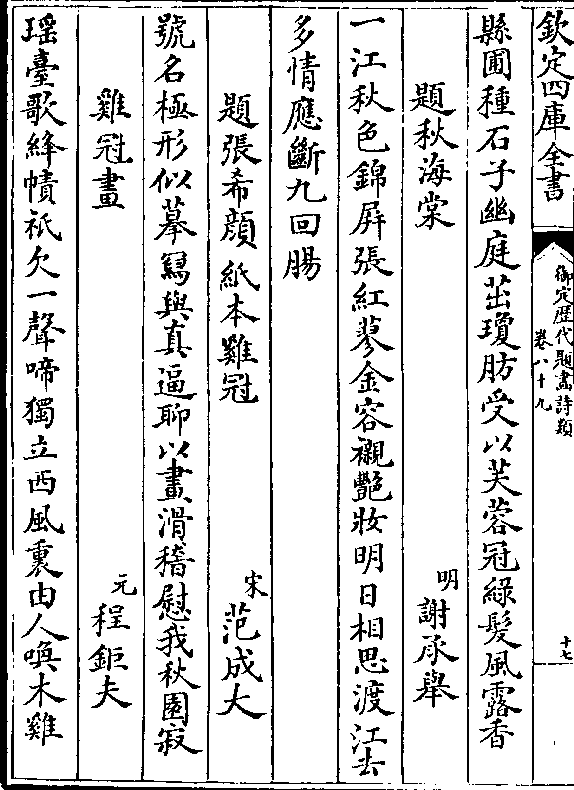 欽定四庫全書
御定歴代題畫詩類
卷八十九
十七
縣圃種石子幽庭茁瓊肪受以芙蓉冠綠髮風露香
題秋海棠
明 謝承舉
一江秋色錦屏張紅蓼金容襯艷妝明日相思渡江去
多情應斷九回腸
題張希顔紙本雞冠
宋 范成大
號名極形似摹冩與真逼聊以畫滑稽慰我秋園寂
雞冠畫
元 程鉅夫
瑶臺歌絳幘祇欠一聲啼獨立西風裏由人喚木雞